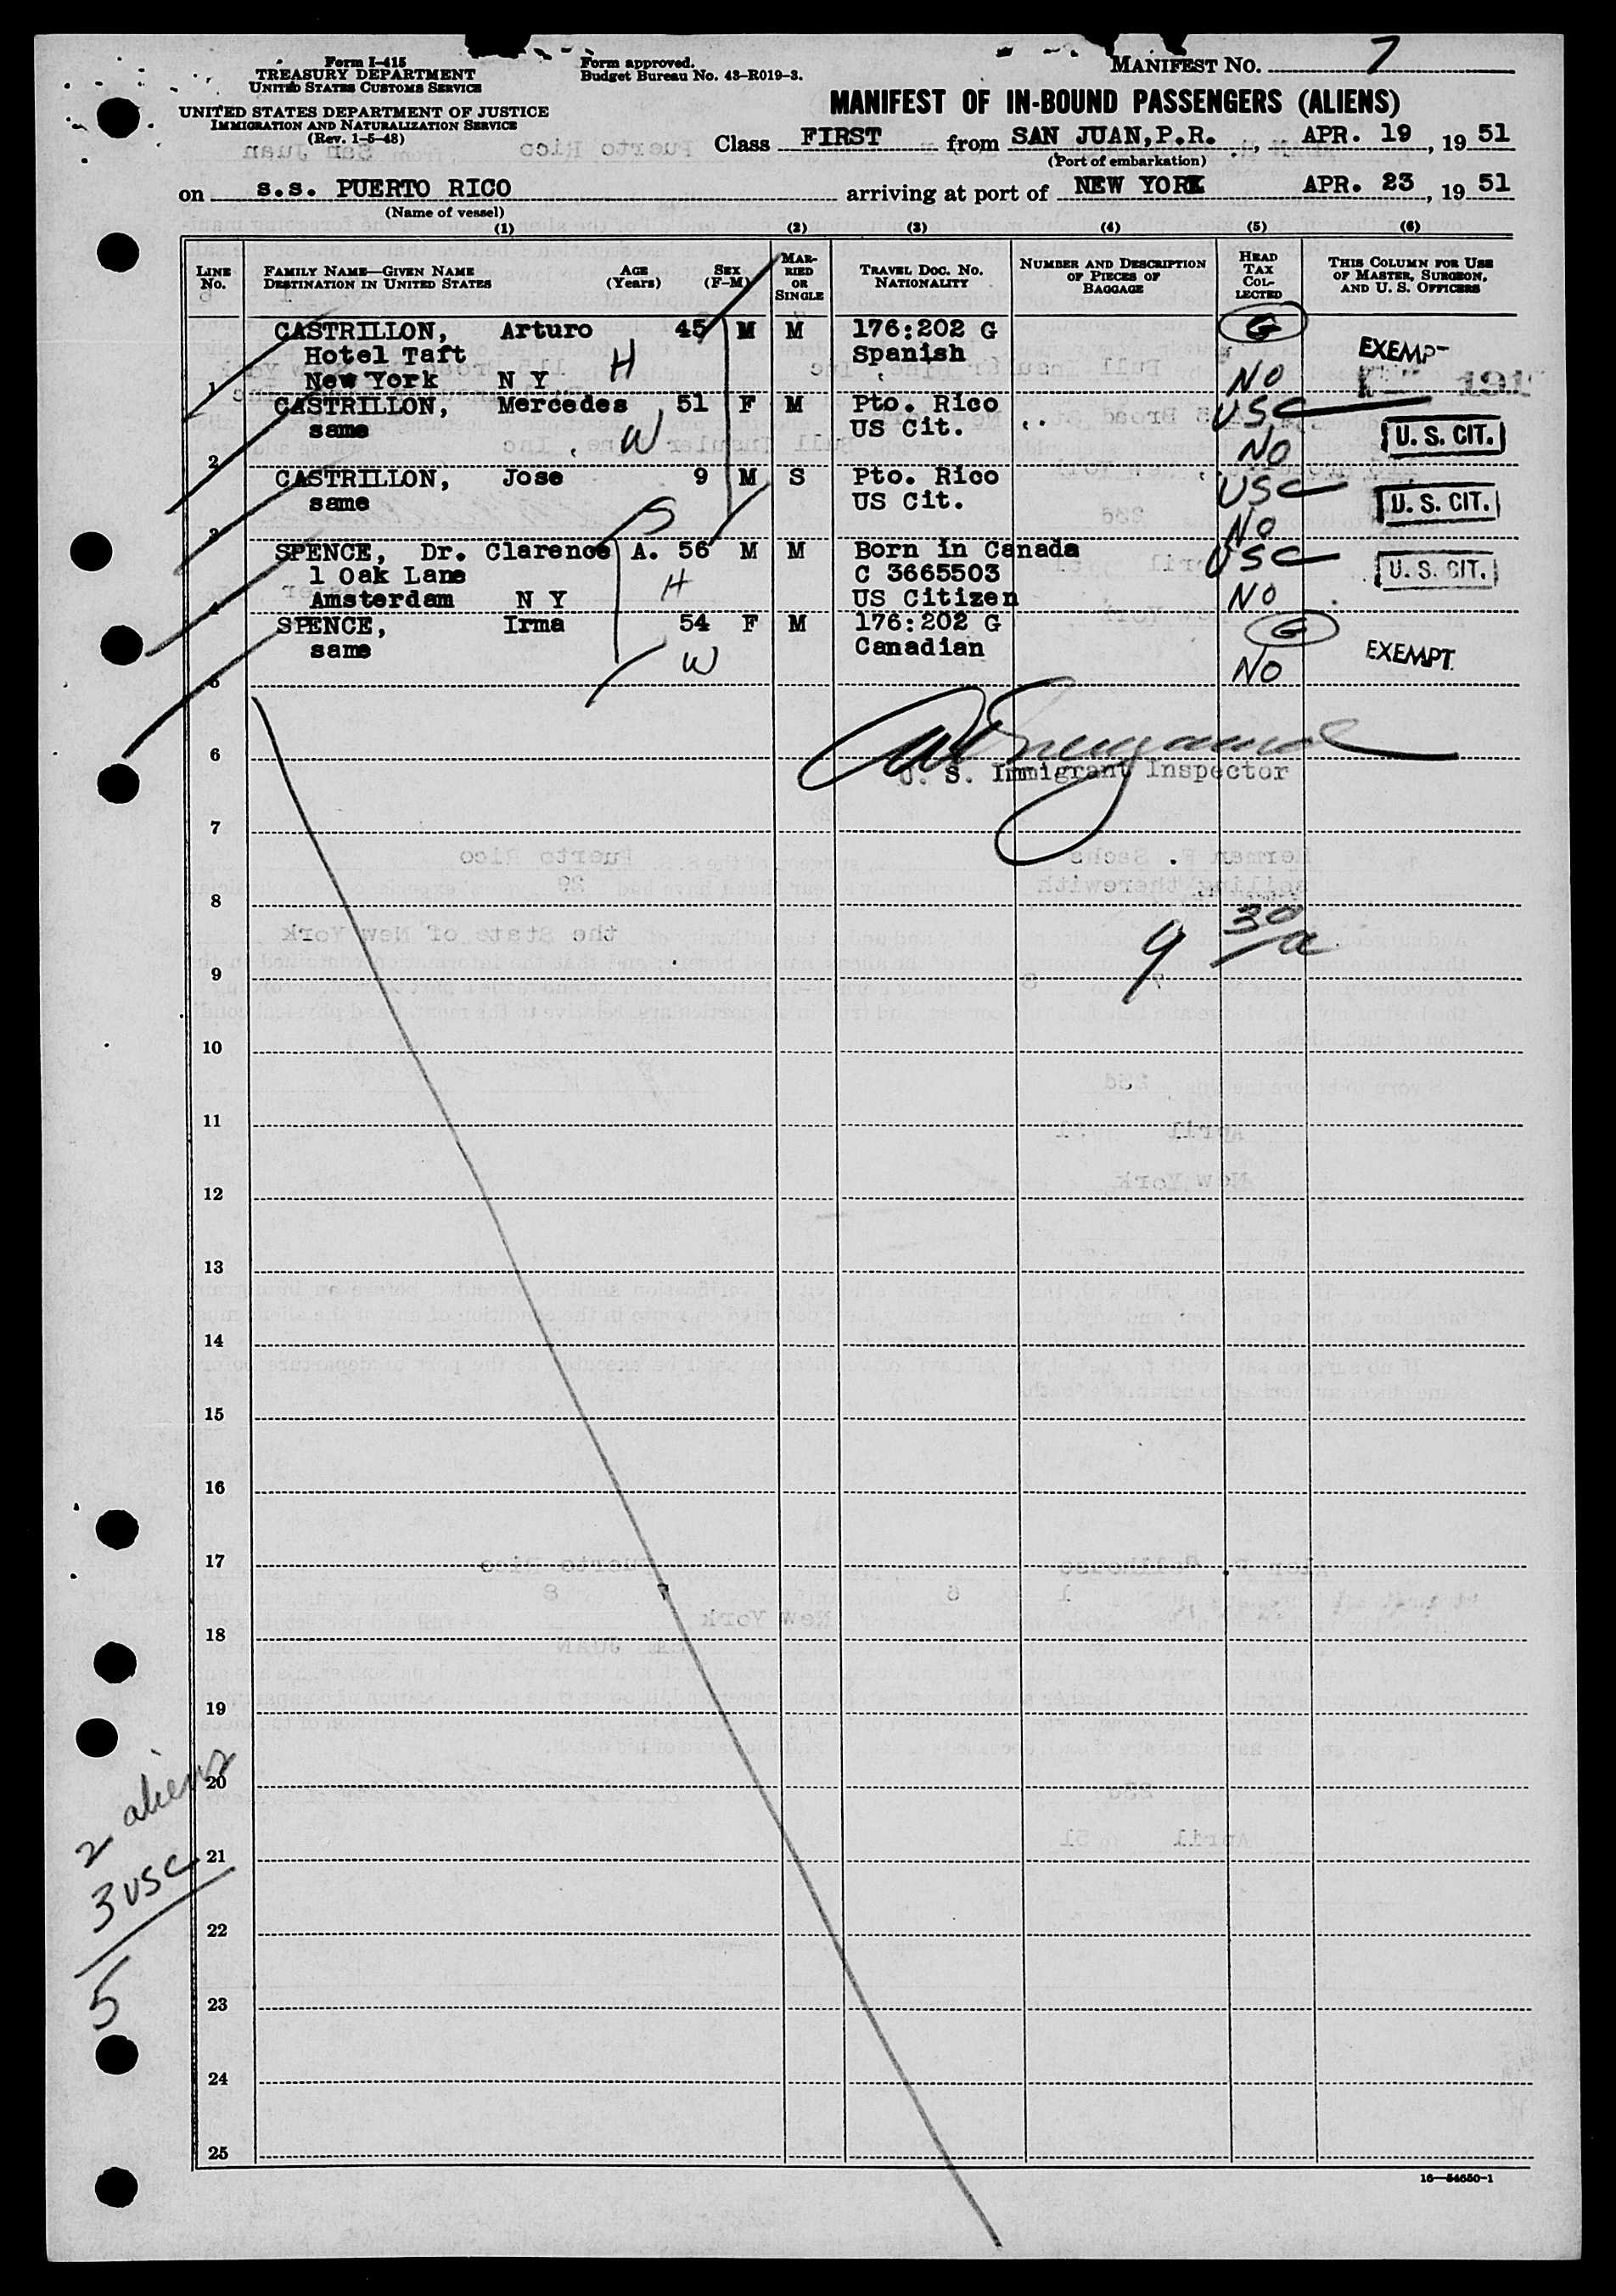 Form I-415
TREASURY DEPARTMENT
UNITED STATES CUSTOMS SERVICE
UNITED STATES DEPARTMENT OF JUSTICE
IMMIGRATION AND NATURALIZATION SERVICE
(Rev. 1-5-48)
Form approved.
Budget Bureau No. 43-R019-3.
MANIFEST NO. 7
MANIFEST OF IN-BOUND PASSENGERS (ALIENS)
Class FIRST from SAN JUAN, P.R., APR. 19, 1951
(Port of embarkation)
on s.s. PUERTO RICO arriving at port of NEW YORK APR. 23, 1951
(Name of vessel)
(1) (2) (3) (4) (5) (6)
LINE No.
FAMILY NAME—GIVEN NAME
DESTINATION IN UNITED STATES
AGE (Years)
SEX (F-M)
MARRIED OR SINGLE
TRAVEL DOC. NO. NATIONALITY
NUMBER AND DESCRIPTION OF PIECES OF BAGGAGE
HEAD TAX COLLECTED
THIS COLUMN FOR USE OF MASTER, SURGEON, AND U. S. OFFICERS
CASTRILLON, Arturo 45 M M 176:202 G G
Hotel Taft H Spanish EXEMPT
1 New York N Y NO
CASTRILLON, Mercedes 51 F M Pto. Rico USC
same W US Cit. U. S. CIT.
2 NO
CASTRILLON, Jose 9 M S Pto. Rico USC
same S US Cit. U. S. CIT.
3 NO
SPENCE, Dr. Clarence A. 56 M M Born in Canada USC
1 Oak Lane H C 3665503 U. S. CIT.
4 Amsterdam N Y US Citizen NO
SPENCE, Irma 54 F M 176:202 G G
same W Canadian EXEMPT
5 NO
6
U. S. Immigrant Inspector
7
8
9 30 a
9
10
11
12
13
14
15
16
17
18
19
20
2 aliens
21
3 USC
22
5
23
24
25
16—54650-1